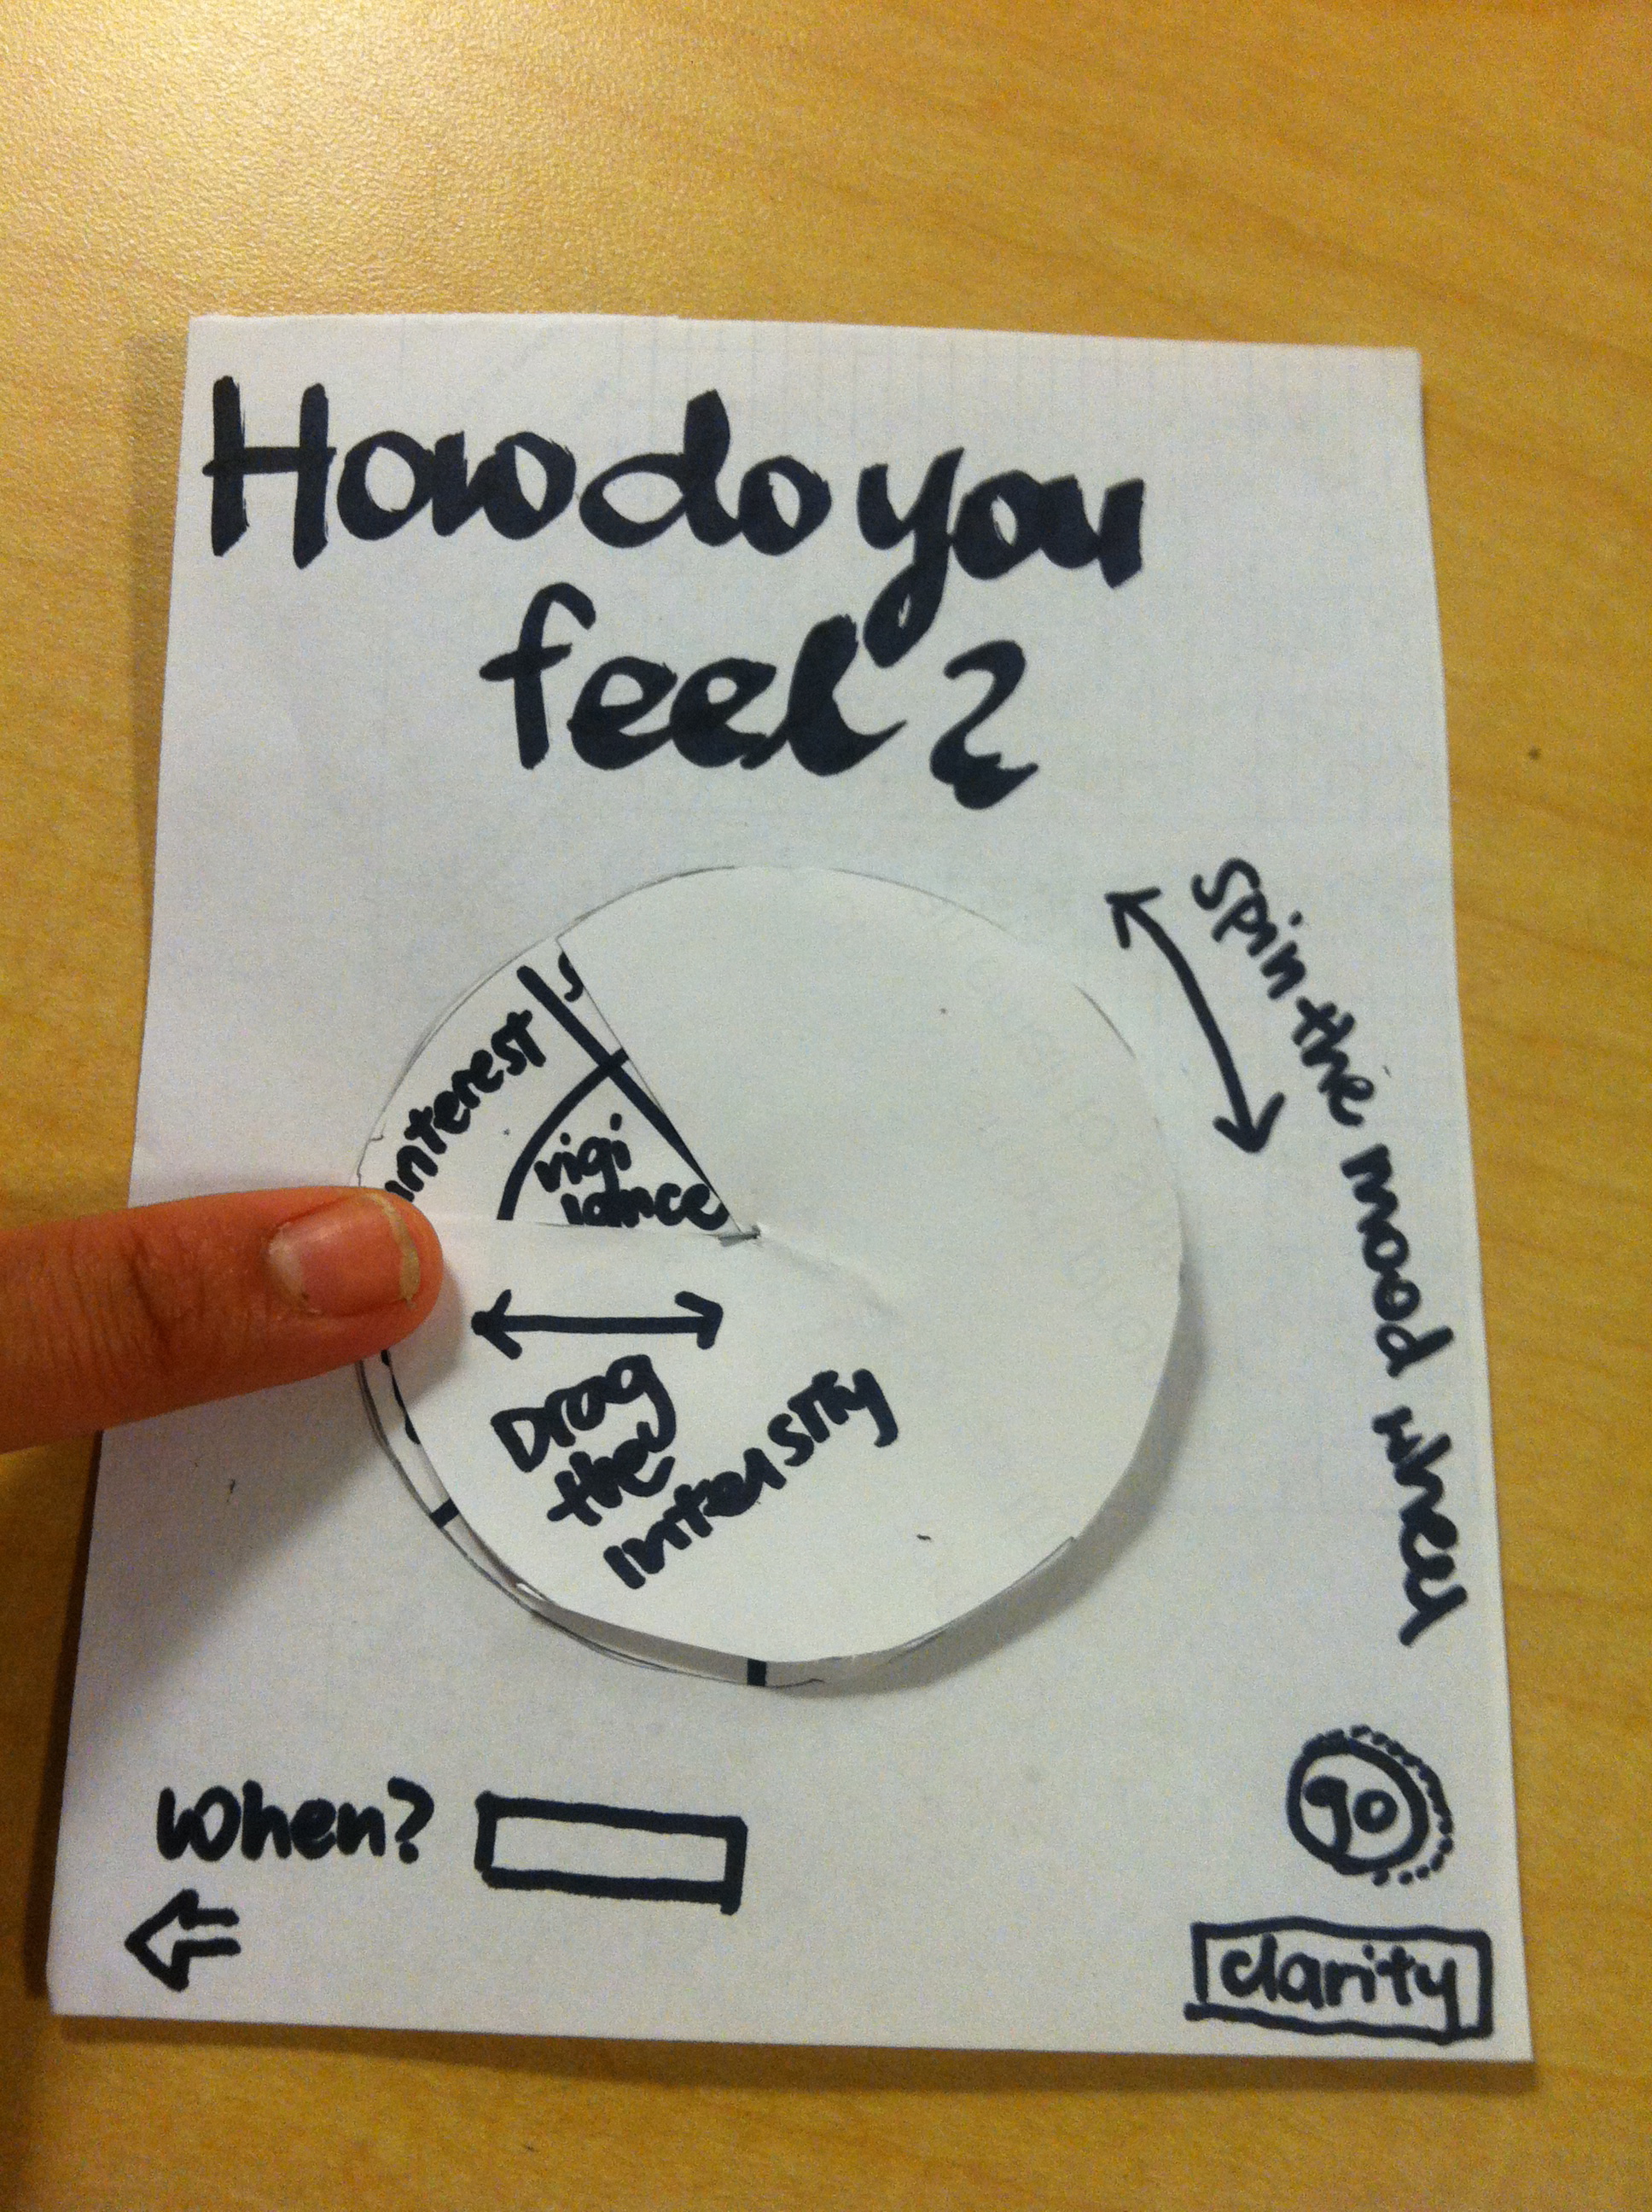 How do you
feel?
Spin the mood wheel
interest
vigi
lance
Drag
the
intensity
When?
go
clarity